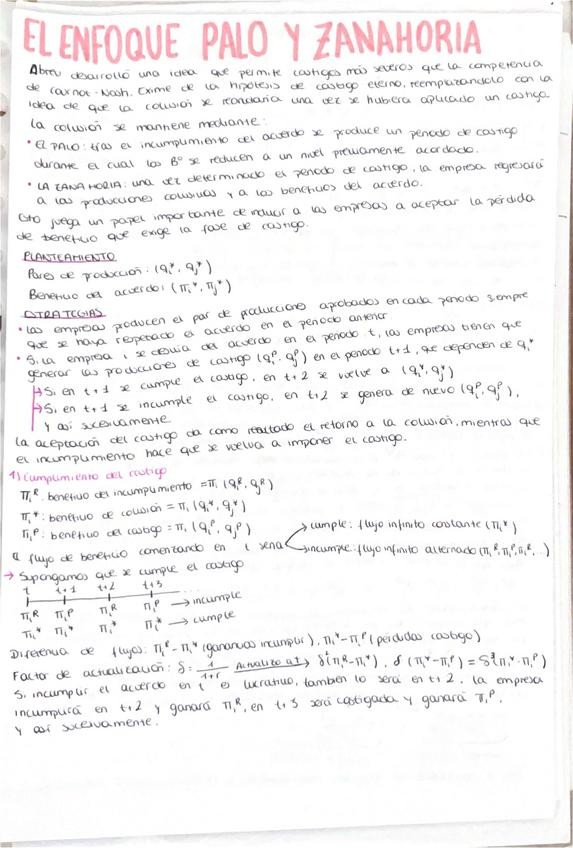 EL ENFOQUE PALO Y ZANAHORIA
Abreu desarrolló una idea que permite castigos más severos que la competencia
de Carnot-Nash. Exime de la hipótesis de castigo eterno, reemplazándolo con la
idea de que la colusión se reanudaría una vez se hubiera aplicado un castigo.
La colusión se mantiene mediante:
• EL PALO: tras el incumplimiento del acuerdo se produce un período de castigo
durante el cual los Bº se reducen a un nivel previamente acordado.
• LA ZANAHORIA: una vez determinado el período de castigo, la empresa regresará
a las producciones colusivas y a los beneficios del acuerdo.
Esto juega un papel importante de inducir a las empresas a aceptar la pérdida
de beneficio que exige la fase de castigo.
PLANTEAMIENTO
Pares de producción: (qi*, qj*)
Beneficio del acuerdo: (πi*, πj*)
ESTRATEGIAS
• Las empresas producen el par de producciones aprobados en cada período siempre
que se haya respetado el acuerdo en el período anterior
• Si la empresa i se desvía del acuerdo en el período t, las empresas tienen que
generar las producciones de castigo (qiᴾ, qjᴾ) en el período t+1, que dependen de qi*
→ Si en t+1 se cumple el castigo, en t+2 se vuelve a (qi*, qj*)
→ Si en t+1 se incumple el castigo, en t+2 se genera de nuevo (qiᴾ, qjᴾ),
y así sucesivamente
La aceptación del castigo da como resultado el retorno a la colusión, mientras que
el incumplimiento hace que se vuelva a imponer el castigo.
1) Cumplimiento del castigo
πiᴿ: beneficio del incumplimiento = πi (qiᴿ, qjᴿ)
πi*: beneficio de colusión = πi (qi*, qj*)
πiᴾ: beneficio del castigo = πi (qiᴾ, qjᴾ)
El flujo de beneficio comenzando en t sería
cumple: flujo infinito constante (πi*)
incumple: flujo infinito alternado (πiᴿ, πiᴾ, πiᴿ, ..)
→ Supongamos que se cumple el castigo
t t+1 t+2 t+3 ...
πiᴿ πiᴾ πiᴿ πiᴾ → incumple
πi* πi* πi* πi* → cumple
Diferencia de flujos: πiᴿ - πi* (ganancias incumplir), πi* - πiᴾ (pérdidas castigo)
Factor de actualización: δ = 1/1+r Actualizo a t → (πiᴿ - πi*), δ (πi* - πiᴾ)
Si incumplir el acuerdo en t es lucrativo, también lo será en t+2, la empresa
incumplirá en t+2 y ganará πiᴿ, en t+3 será castigada y ganará πiᴾ,
y así sucesivamente.